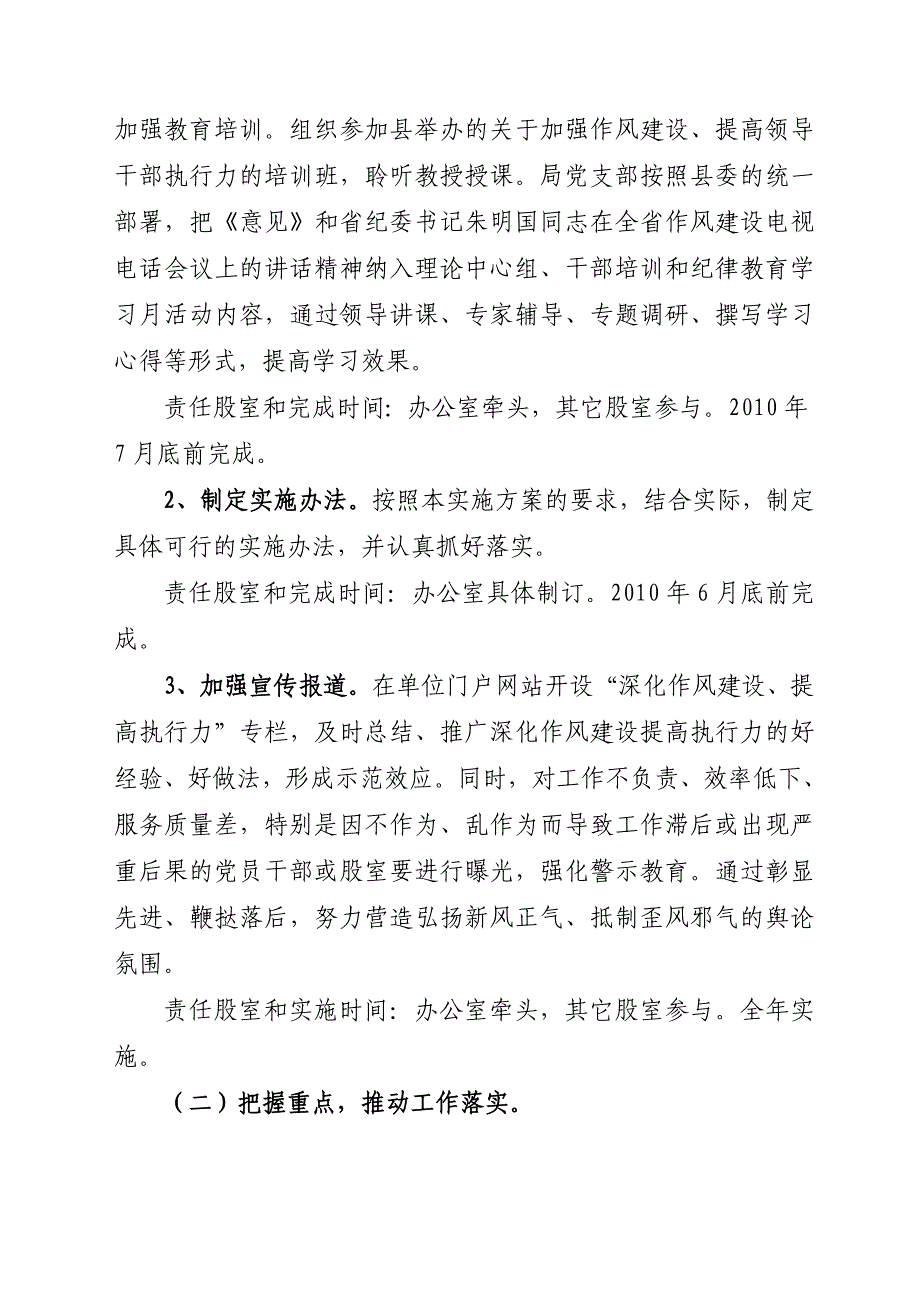 加强教育培训。组织参加县举办的关于加强作风建设、提高领导
干部执行力的培训班，聆听教授授课。局党支部按照县委的统一
部署，把《意见》和省纪委书记朱明国同志在全省作风建设电视
电话会议上的讲话精神纳入理论中心组、干部培训和纪律教育学
习月活动内容，通过领导讲课、专家辅导、专题调研、撰写学习
心得等形式，提高学习效果。
责任股室和完成时间：办公室牵头，其它股室参与。2010 年
7 月底前完成。
2、制定实施办法。按照本实施方案的要求，结合实际，制定
具体可行的实施办法，并认真抓好落实。
责任股室和完成时间：办公室具体制订。2010 年 6 月底前完
成。
3、加强宣传报道。在单位门户网站开设“深化作风建设、提
高执行力”专栏，及时总结、推广深化作风建设提高执行力的好
经验、好做法，形成示范效应。同时，对工作不负责、效率低下、
服务质量差，特别是因不作为、乱作为而导致工作滞后或出现严
重后果的党员干部或股室要进行曝光，强化警示教育。通过彰显
先进、鞭挞落后，努力营造弘扬新风正气、抵制歪风邪气的舆论
氛围。
责任股室和实施时间：办公室牵头，其它股室参与。全年实
施。
（二）把握重点，推动工作落实。